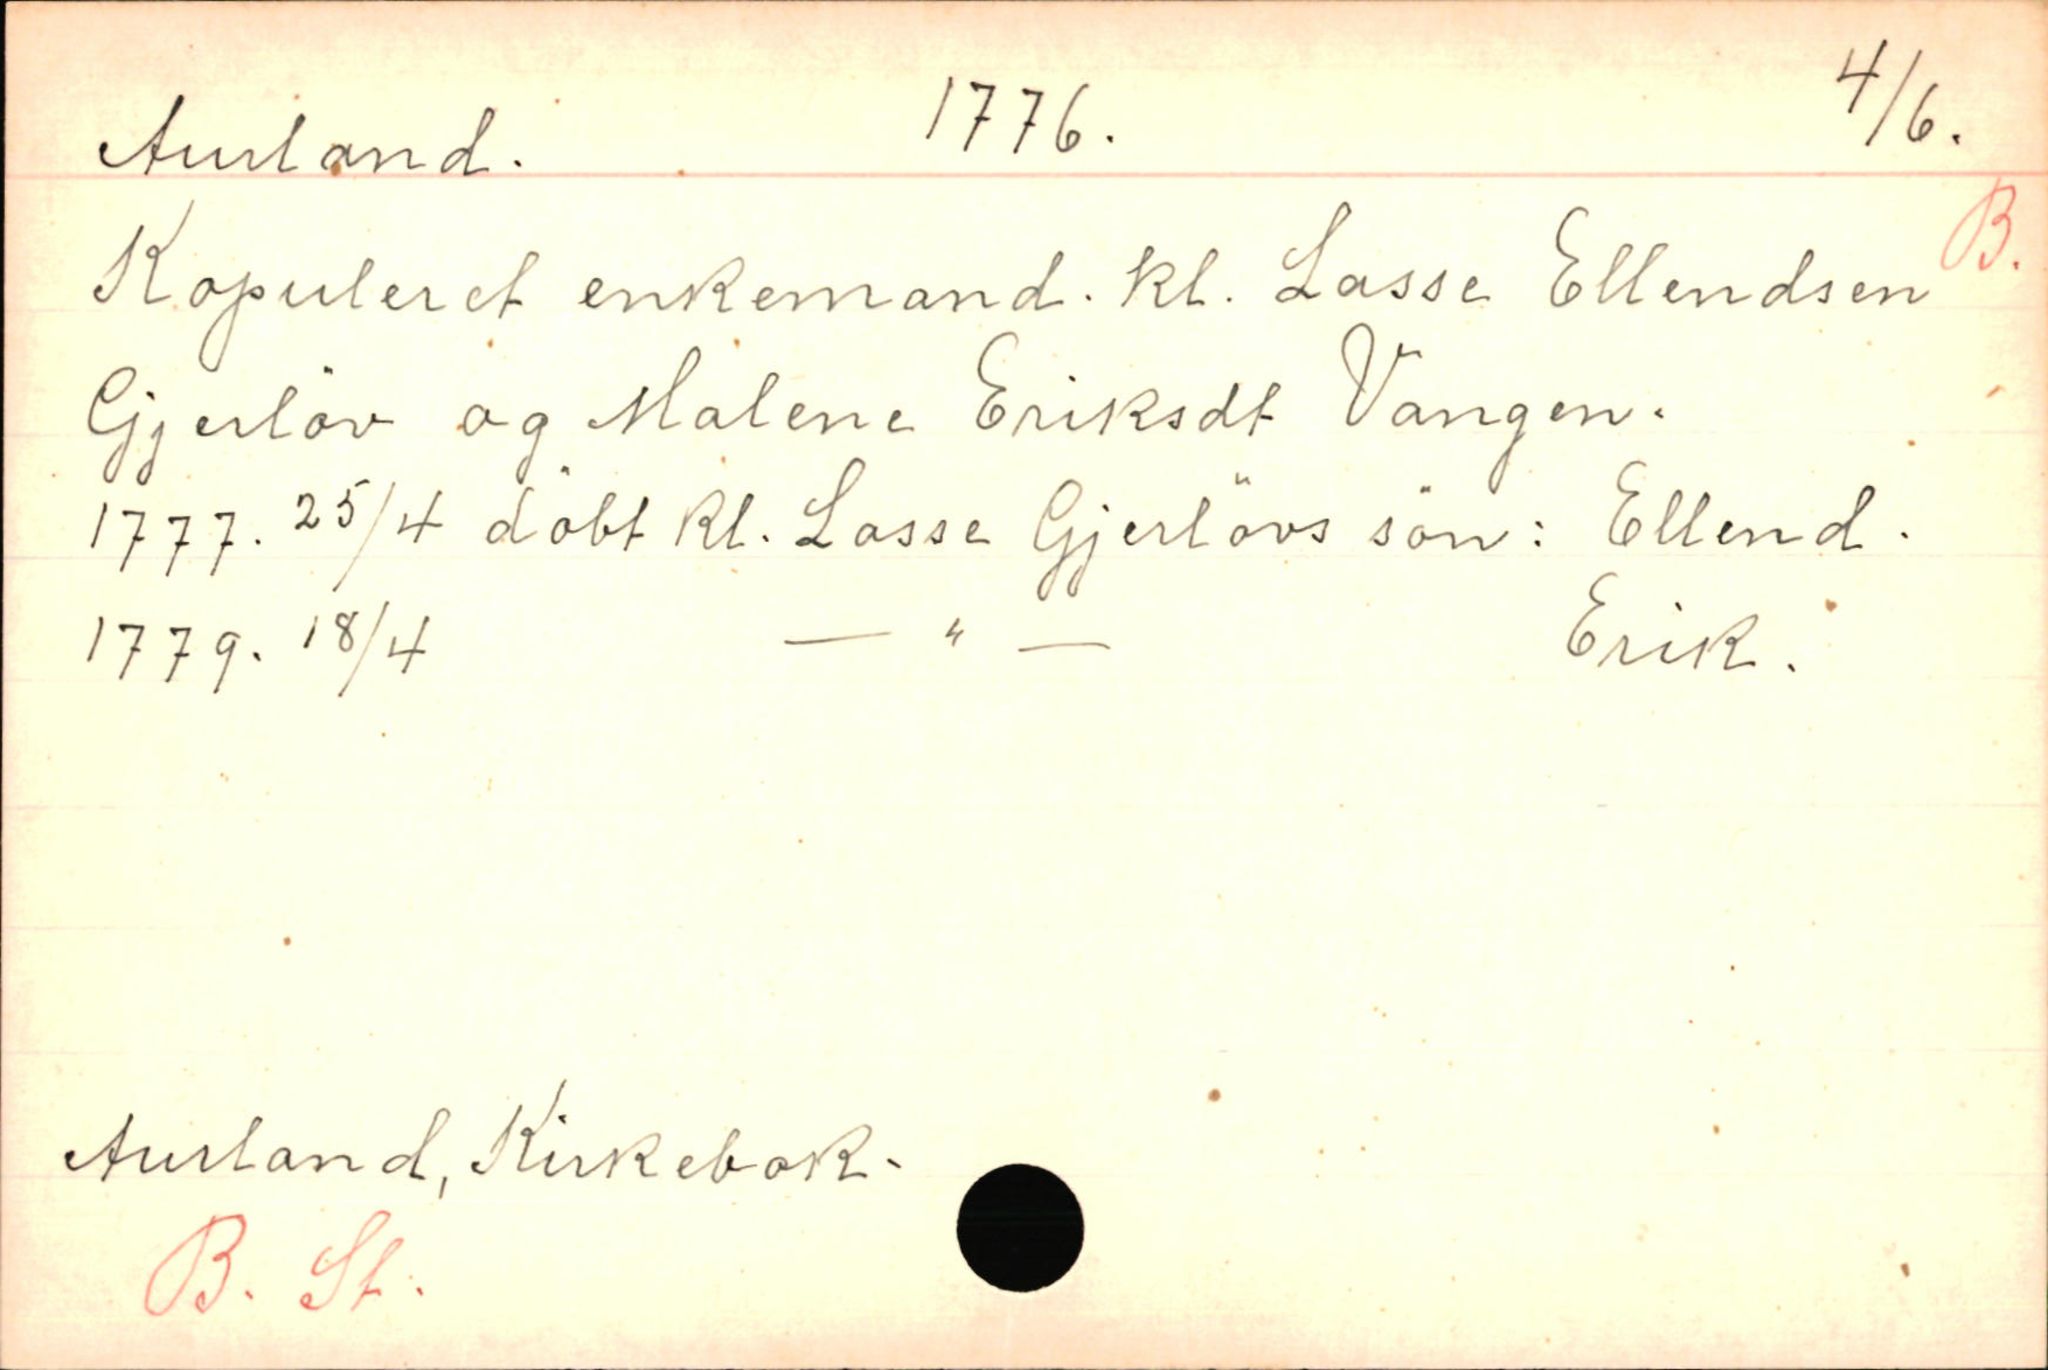 Aurland. 1776. 4/6.
B.
Kopuleret enkemand. kl. Lasse Ellendsen
Gjerlöv og Malene Eriksdt Vangen.
1777. 25/4 döbt kl. Lasse Gjerlövs sön: Ellend.
1779. 18/4 — " — Erik.
Aurland, Kirkebok.
B. St.